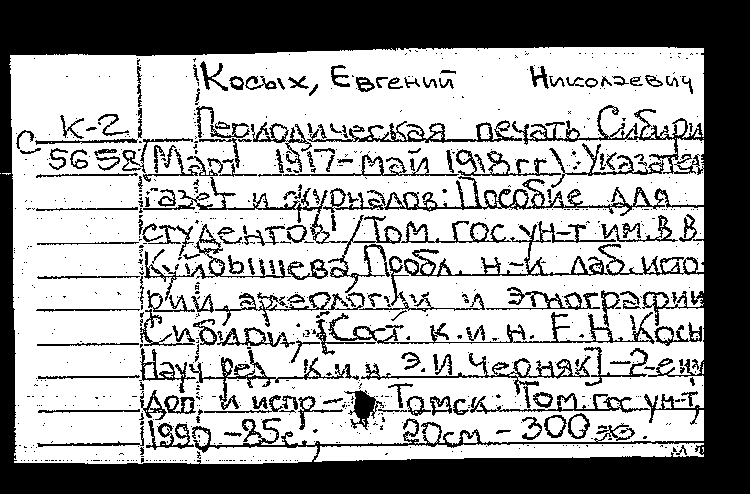 Косых, Евгений Николаевич
К-2
Периодическая печать Сибири
С 5658
(Март 1917-май 1918гг): Указател
газет и журналов: Пособие для
студентов / Том. гос. ун-т им. В.В.
Куйбышева, Пробл. н.-и. лаб. исто-
рии, археологии и этнографии
Сибири; [Сост. к.и.н. Е.Н. Косы
Науч ред. к.и.н. Э.И. Черняк].-2-е из
доп. и испр- Томск: Том. гос ун-т,
1990.-85с.; 20см - 300 экз.